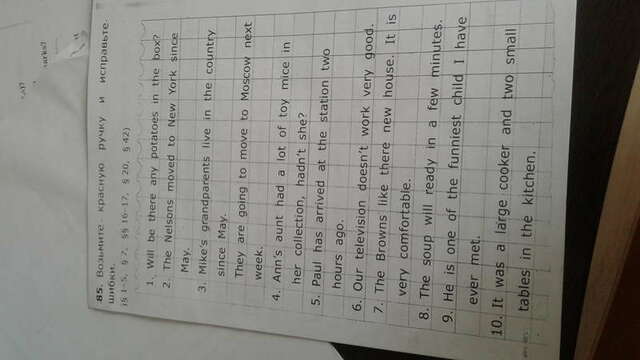 85. Возьмите красную ручку и исправьте
шибки.
(§ 1-5, § 7, §§ 16-17, § 20, § 42)
1. Will be there any potatoes in the box?
2. The Nelsons moved to New York since
May.
3. Mike's grandparents live in the country
since May.
They are going to move to Moscow next
week.
4. Ann's aunt had a lot of toy mice in
her collection, hadn't she?
5. Paul has arrived at the station two
hours ago.
6. Our television doesn't work very good.
7. The Browns like there new house. It is
very comfortable.
8. The soup will ready in a few minutes.
9. He is one of the funniest child I have
ever met.
10. It was a large cooker and two small
tables in the kitchen.